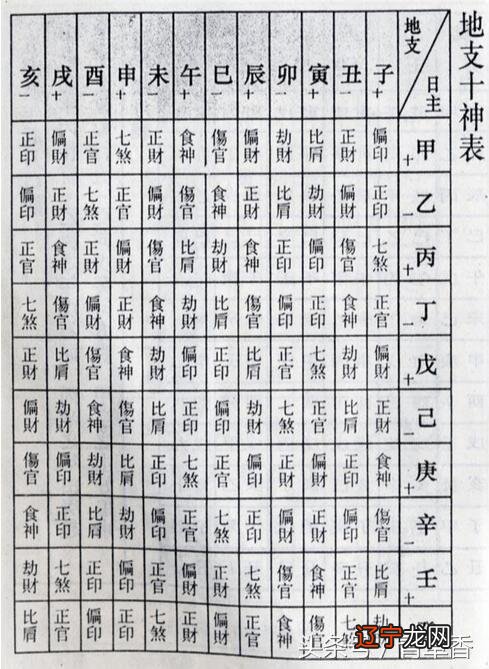 地支十神表
地支 日主 子+ 丑− 寅+ 卯− 辰+ 巳− 午+ 未− 申+ 酉− 戌+ 亥−
甲+ 偏印 正財 比肩 劫財 偏財 傷官 食神 正財 七煞 正官 偏財 正印
乙− 正印 偏財 劫財 比肩 正財 食神 傷官 偏財 正官 七煞 正財 偏印
丙+ 七煞 傷官 偏印 正印 食神 劫財 比肩 傷官 偏財 正財 食神 正官
丁− 正官 食神 正印 偏印 傷官 比肩 劫財 食神 正財 偏財 傷官 七煞
戊+ 偏財 劫財 七煞 正官 比肩 正印 偏印 劫財 食神 傷官 比肩 正財
己− 正財 比肩 正官 七煞 劫財 偏印 正印 比肩 傷官 食神 劫財 偏財
庚+ 食神 正印 偏財 正財 偏印 正官 七煞 正印 比肩 劫財 偏印 傷官
辛− 傷官 偏印 正財 偏財 正印 七煞 正官 偏印 劫財 比肩 正印 食神
壬+ 比肩 正官 食神 傷官 七煞 正財 偏財 正官 偏印 正印 七煞 劫財
傷官 食神 正官 偏財 正財 七煞 正印 偏印 正官 比肩
辽宁龙网